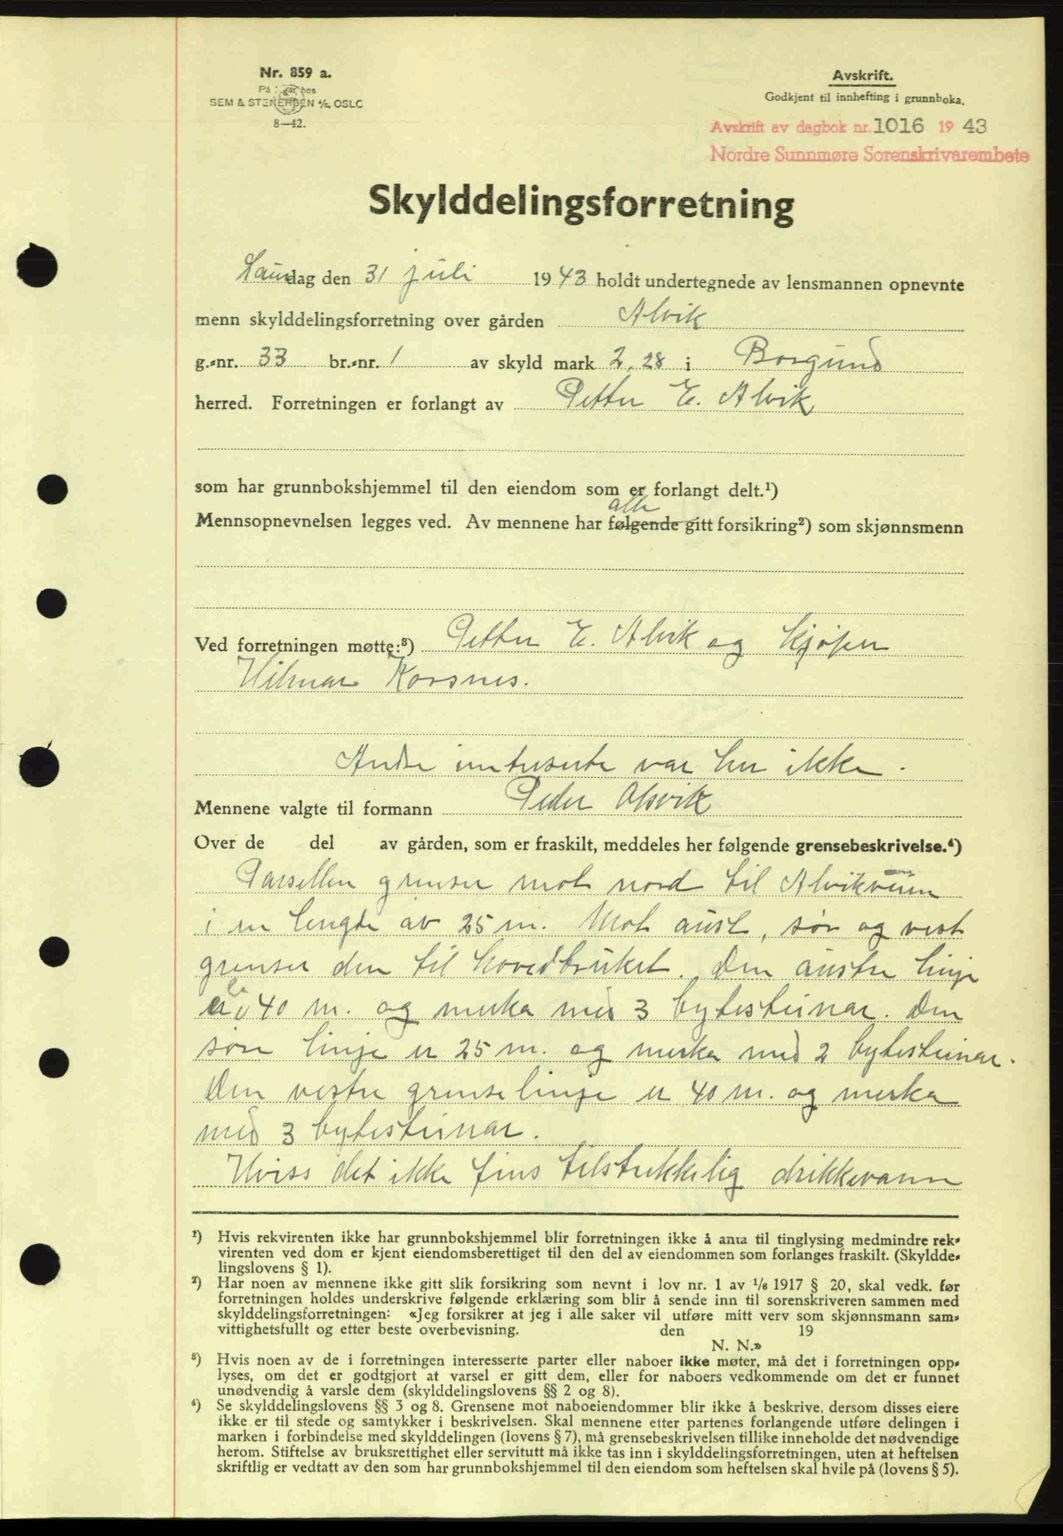 Nr. 859 a.
SEM & STENERSEN A/S, OSLO
8—42.
Avskrift.
Godkjent til innhefting i grunnboka.
Avskrift av dagbok nr. 1016 1943
Nordre Sunnmøre Sorenskrivarembete
Skylddelingsforretning
Laurdag den 31 juli 1943 holdt undertegnede av lensmannen opnevnte
menn skylddelingsforretning over gården Alvik
g.-nr. 33 br.-nr. 1 av skyld mark 2,28 i Borgund
herred. Forretningen er forlangt av Petter E. Alvik
som har grunnbokshjemmel til den eiendom som er forlangt delt.¹)
alle
Mennsopnevnelsen legges ved. Av mennene har følgende gitt forsikring²) som skjønnsmenn
Ved forretningen møtte:³) Petter E. Alvik og kjøper
Hilmar Korsnes.
Andre interserte var her ikke.
Mennene valgte til formann Peder Alsvik
Over de del av gården, som er fraskilt, meddeles her følgende grensebeskrivelse.⁴)
Parsellen grenser mot nord til Alvikveien
i en lengde av 25 m. Mot aust, sør og vest
grenser den til hovedbruket. Den austre linje
er 40 m. og merka med 3 bytesteinar. Den
søre linje er 25 m. og merka med 2 bytesteinar.
Den vestre grenselinje er 40 m. og merka
med 3 bytesteinar.
Hviss det ikke fins tilstrekkelig drikkevann
¹) Hvis rekvirenten ikke har grunnbokshjemmel blir forretningen ikke å anta til tinglysing medmindre rek-
virenten ved dom er kjent eiendomsberettiget til den del av eiendommen som forlanges fraskilt. (Skyldde-
lingslovens § 1).
²) Har noen av mennene ikke gitt slik forsikring som nevnt i lov nr. 1 av 1/6 1917 § 20, skal vedk. før
forretningen holdes underskrive følgende erklæring som blir å sende inn til sorenskriveren sammen med
skylddelingsforretningen: «Jeg forsikrer at jeg i alle saker vil utføre mitt verv som skjønnsmann sam-
vittighetsfullt og etter beste overbevisning. den 19
N. N.»
³) Hvis noen av de i forretningen interesserte parter eller naboer ikke møter, må det i forretningen opp-
lyses, om det er godtgjort at varsel er gitt dem, eller for naboers vedkommende om det er funnet
unødvendig å varsle dem (skylddelingslovens §§ 2 og 8).
⁴) Se skylddelingslovens §§ 3 og 8. Grensene mot naboeiendommer blir ikke å beskrive, dersom disses eiere
ikke er til stede og samtykker i beskrivelsen. Skal mennene etter partenes forlangende utføre delingen i
marken i forbindelse med skylddelingen (lovens § 7), må grensebeskrivelsen tillike inneholde det nødvendige
herom. Stiftelse av bruksrettighet eller servitutt må ikke tas inn i skylddelingsforretningen, uten at heftelsen
skriftlig er vedtatt av den som har grunnbokshjemmel til den eiendom som heftelsen skal hvile på (lovens § 5).